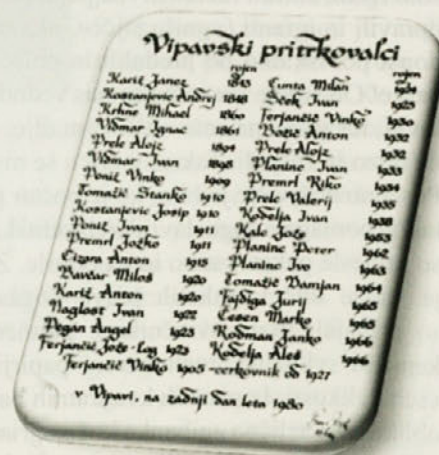 Vipavski pritrkovalci
rojen
Karič Janez 1843
Kostanjevic Andrej 1848
Krhne Mihael 1860
Vidmar Ignac 1861
Prelc Alojz 1894
Vidmar Ivan 1898
Ponič Vinko 1909
Tomažič Stanko 1910
Kostanjevic Josip 1910
Ponič Ivan 1911
Premrl Jožko 1911
Cizora Anton 1915
Bavčar Miloš 1920
Karič Anton 1920
Naglost Ivan 1922
Pegan Angel 1923
Ferjančič Jože-Lug 1923
rojen
Cunta Milan 1924
Šček Ivan 1925
Ferjančič Vinko 1930
Božič Anton 1932
Prelc Alojz 1932
Planinc Ivan 1933
Premrl Riko 1934
Prelc Valerij 1935
Kodelja Ivan 1938
Kalc Jože 1953
Planinc Peter 1962
Planinc Ivo 1963
Tomažič Damjan 1964
Fajdiga Jurij 1965
Česen Marko 1965
Rodman Janko 1966
Kodelja Aleš 1966
Ferjančič Vinko 1905 - cerkovnik od 1927
v Vipavi, na zadnji dan leta 1980